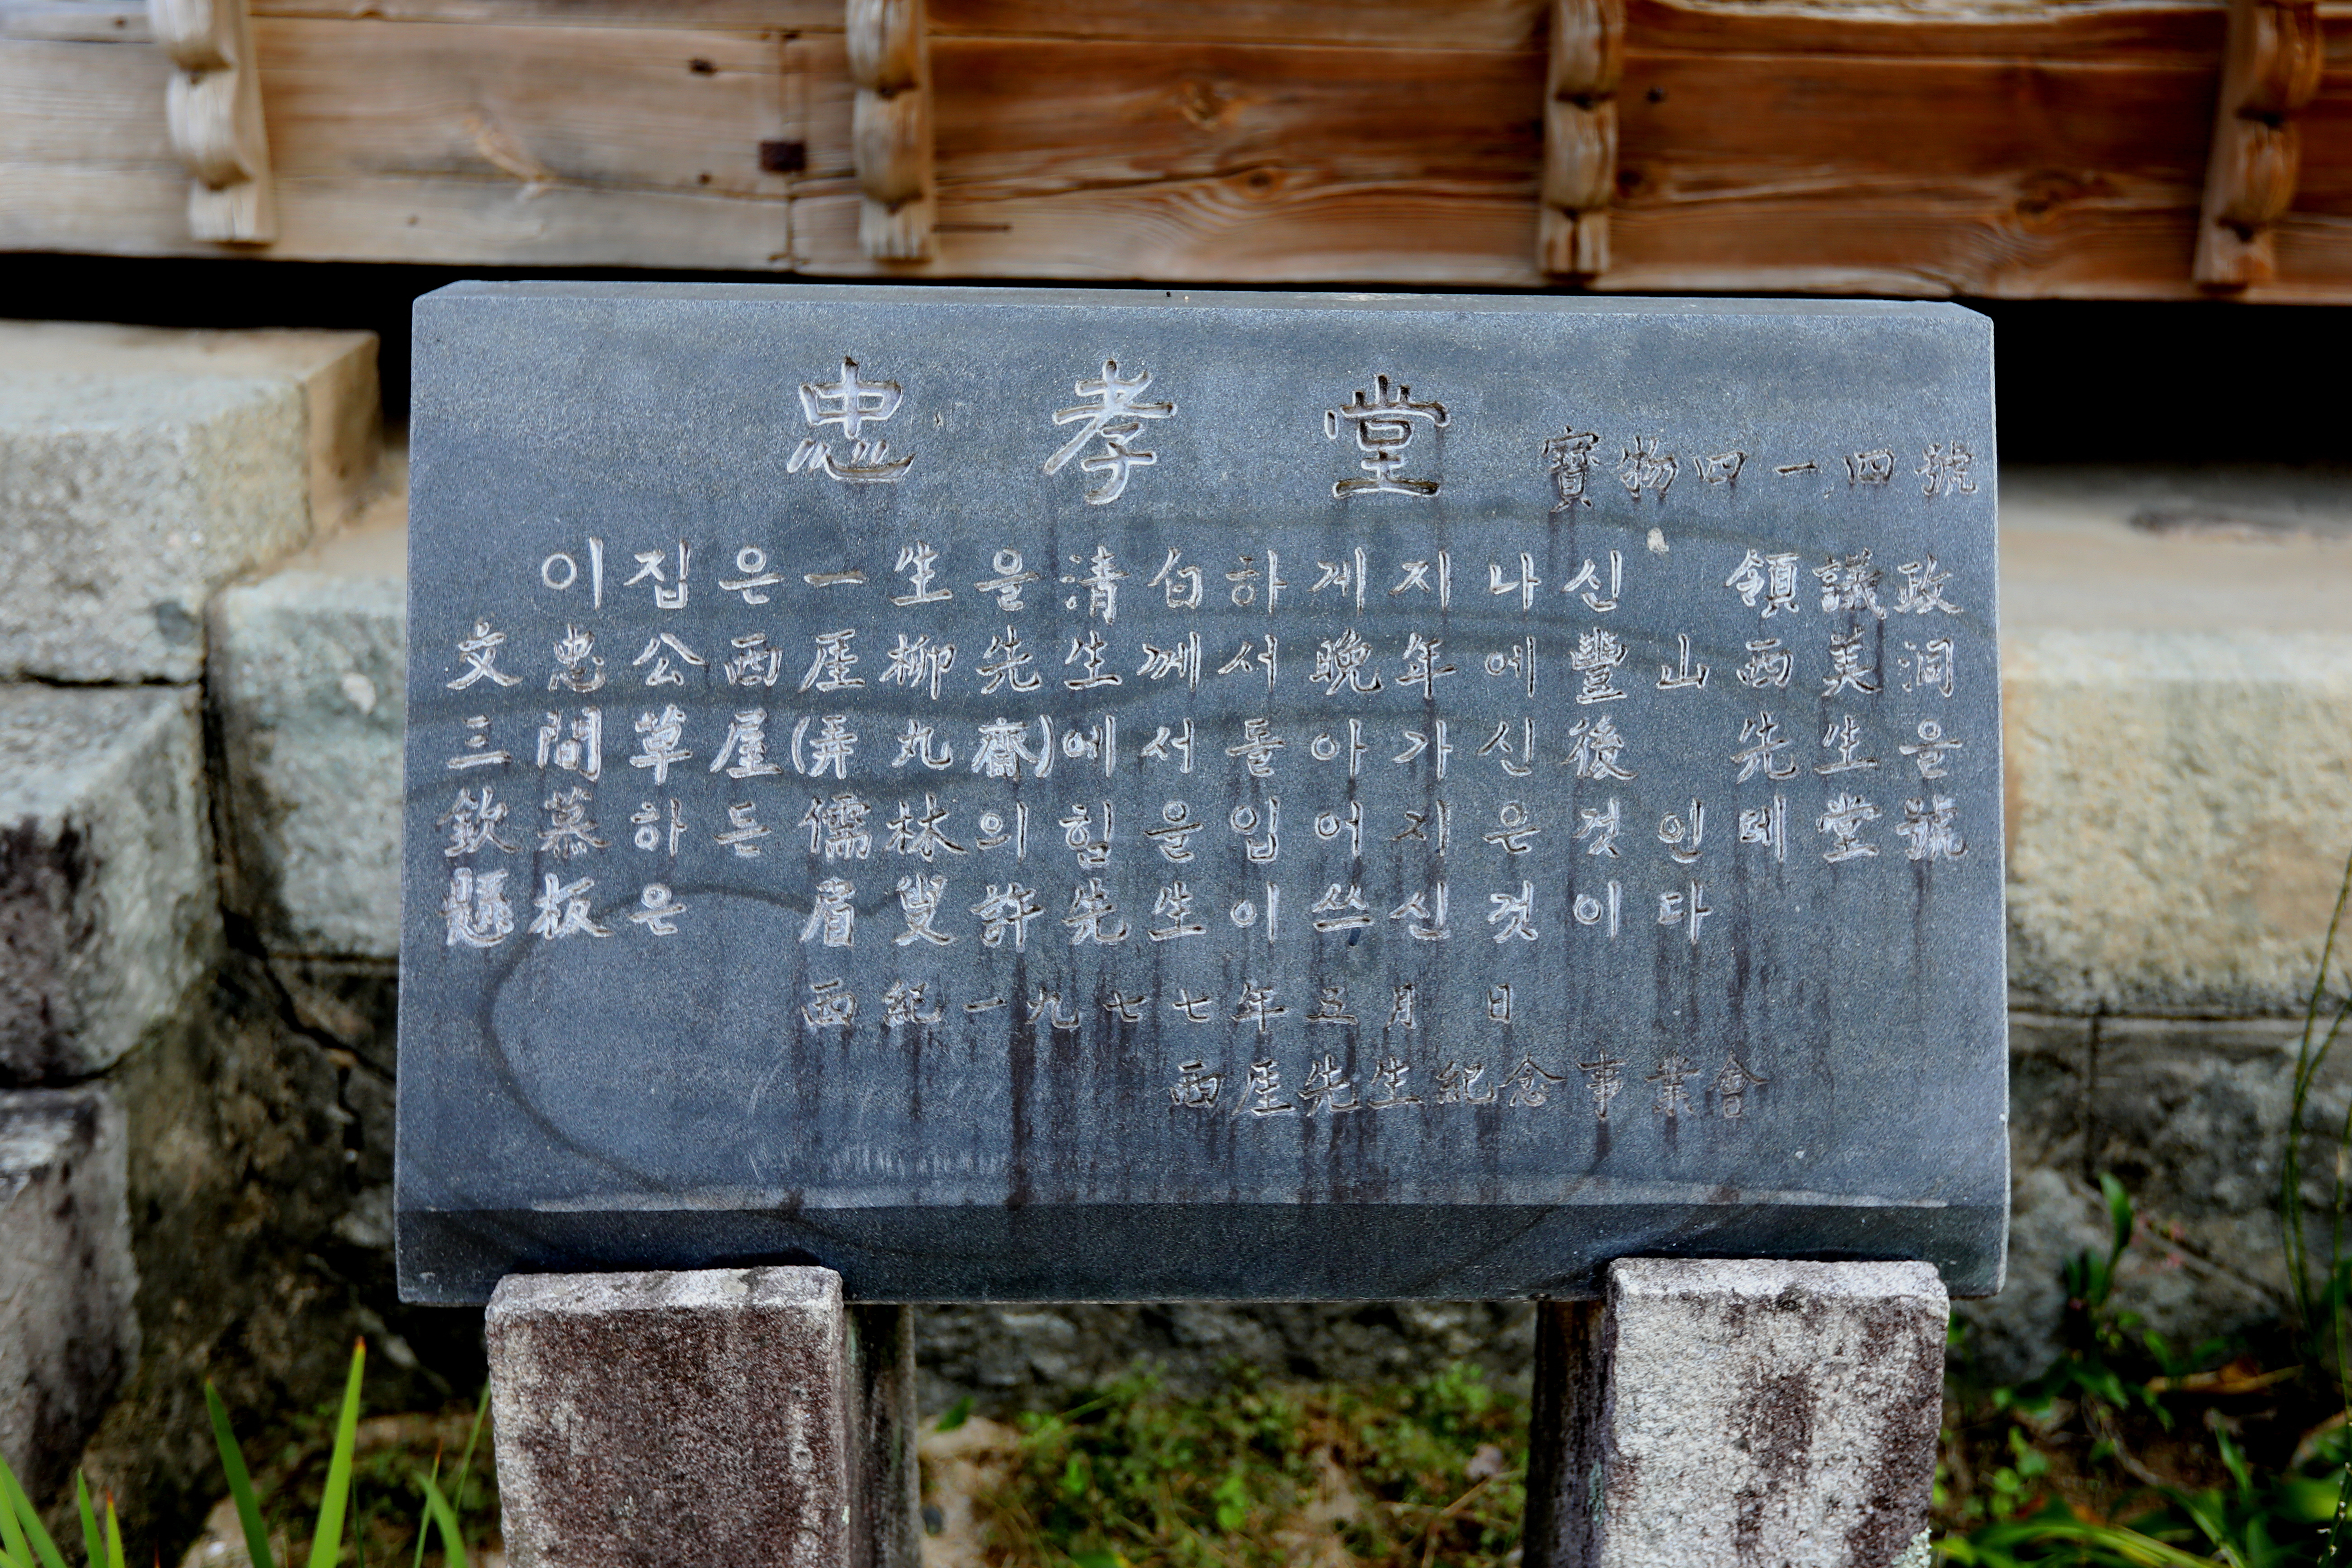 忠孝堂 寶物四一四號
이집은一生을淸白하게지나신 領議政
文忠公西厓柳先生께서晩年에豐山西美洞
三間草屋(弄丸齋)에서돌아가신後 先生을
欽慕하든儒林의힘을입어지은것인데堂號
懸板은 眉叟許先生이쓰신것이다
西紀一九七七年五月 日
西厓先生紀念事業會